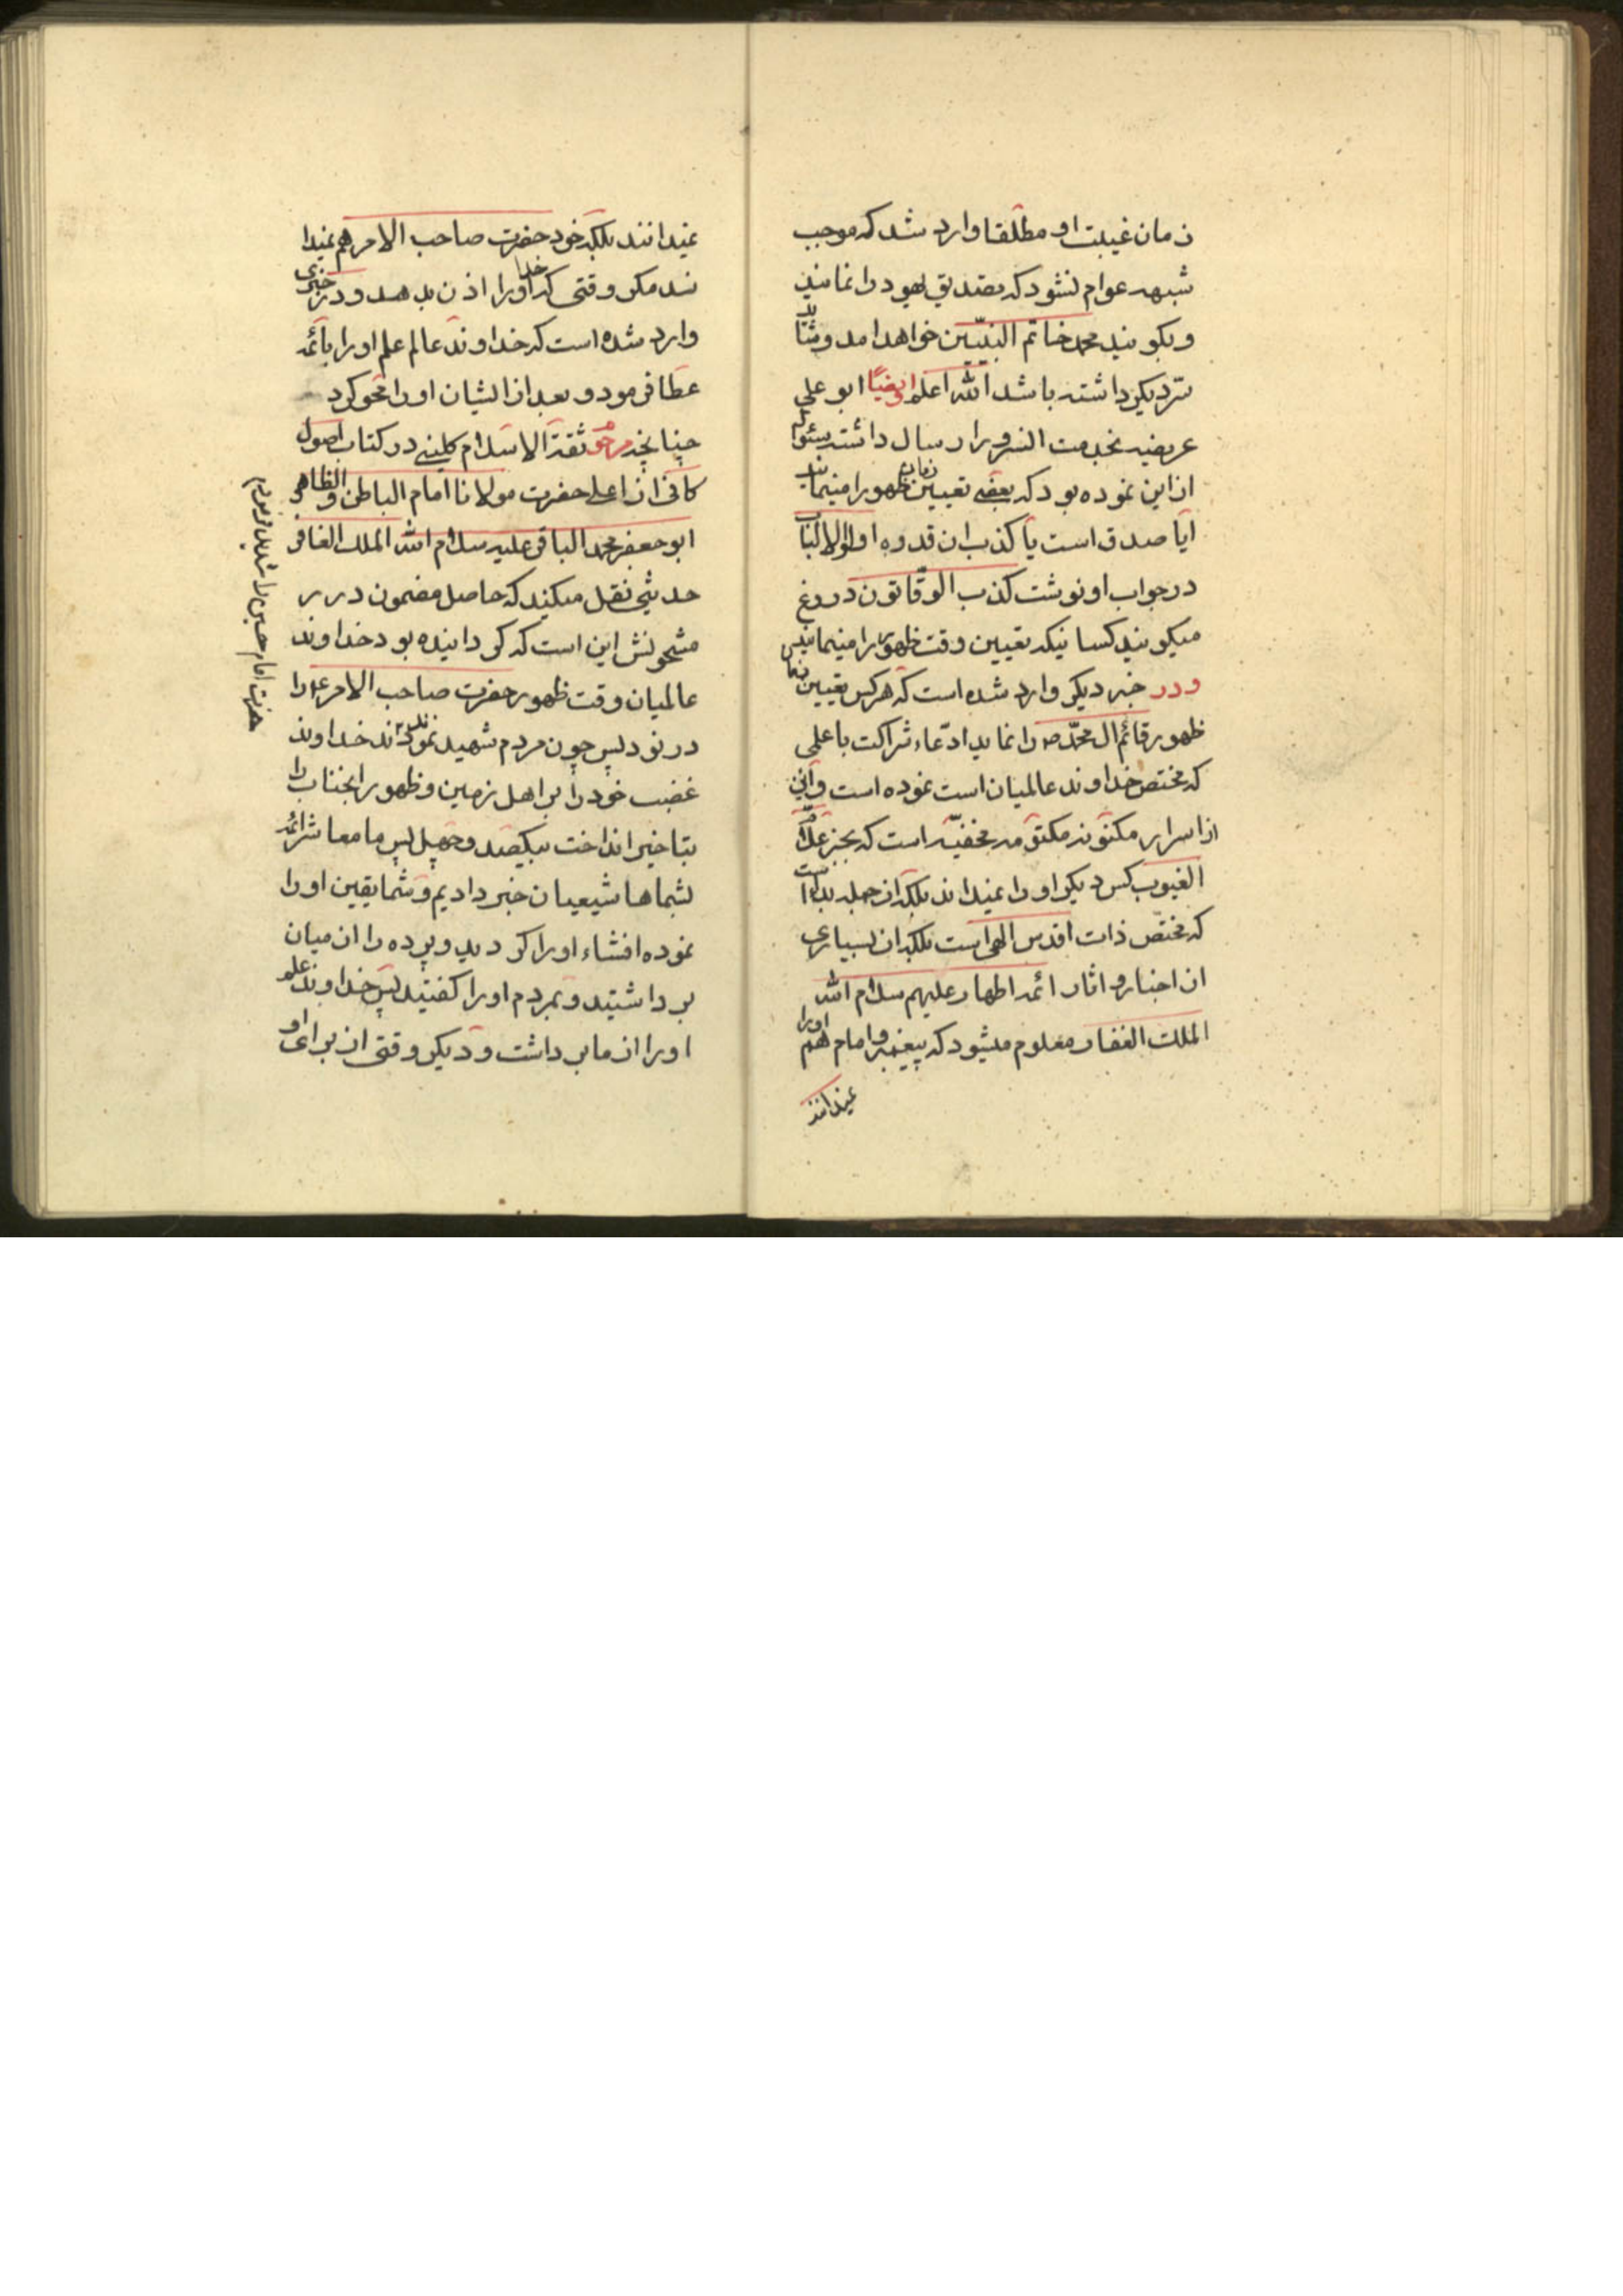 زمان غیبت او مطلقا وارد شد که موجب
شبهه عوام نشود که تصدیق یهود را نمانید
و بگویند محمد خاتم النبیّین خواهد امد و شاید
سرّ دیگر داشته باشد الله اعلم و ایضاً ابو علی
عریضه بخدمت السرور ارسال داشته سئوال
از این نموده بود که بعضی تعیین زمان ظهور را مینمایند
ایا صدق است یا کذب ان قدوه اولو الالباب
در جواب او نوشت کذب الوقّاتون دروغ
میگویند کسانیکه تعیین وقت ظهور را مینمایند پس
و در خبر دیگر وارد شده است که هر کس تعیین زمان
ظهور قائم ال محمّد ص را نماید ادّعاء شراکت با علمی
که مختص خداوند عالمیان است نموده است و این
از اسرار مکنونه مکتومه مخفیّه است که بجز علّام
الغیوب کس دیگر او را نمیداند بلکه از جمله بداء است
که مختصّ ذات اقدس الهی است بلکه از بسیاری
از اخبار و اثار ائمه اطهار علیهم سلام الله
الملک الغفار معلوم میشود که پیغمبر و امام هم او را
نمیدانند
نمیدانند بلکه خود حضرت صاحب الامر هم نمیدا
ند مگر وقتی که خدا او را اذن بدهد و در خبری
وارد شده است که خداوند عالم علم او را بائمه
عطا فرمود و بعد از ایشان او را محو کرد
چنانچه مرحوم ثقة الاسلام کلینی در کتاب اصول
کافی از اعلی حضرت مولانا امام الباطن و الظاهر
ابو جعفر محمد الباقر علیه سلام الله الملک الغافر
حدیثی نقل میکند که حاصل مضمون درر
مشحونش این است که گردانیده بود خداوند
عالمیان وقت ظهور حضرت صاحب الامر ع را
در نود پس چون مردم شهید نمودند خداوند
حضرت امام حسین را شدید نمود
غضب خود را بر اهل زمین و ظهور انجناب را
بتاخیر انداخت بیکصد و چهل پس ما معاشر ائمه
بشماها شیعیان خبر دادیم و شما یقین او را
نموده افشاء او را کردید و پرده را از میان
برداشتید و بمردم او را گفتید پس خداوند علم
او را از ما برداشت و دیگر وقتی از برای او